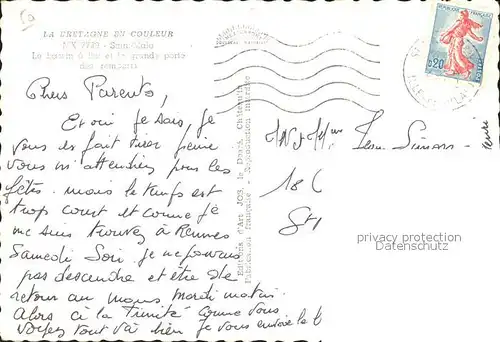 LA BRETAGNE EN COULEUR
Le bassin à flot et la grande porte
des remparts
Chers Parents,
Et oui je sais, je
vous ai fait peine
vous m'attendiez pour les
fêtes. mais le temps est
trop court et comme je
me suis trouvée à Rennes
Samedi Soir je ne pouvais
pas descendre et être de
retour au mans mardi matin.
Alors à la Trinité comme vous
voyez tout va bien je vous envoie le
Editions d'Art JOS, le Doaré, Châteaulin
Fabrication française - Reproduction interdite
REPUBLIQUE FRANÇAISE
0,20
POSTES
18
privacy protection
Datenschutz